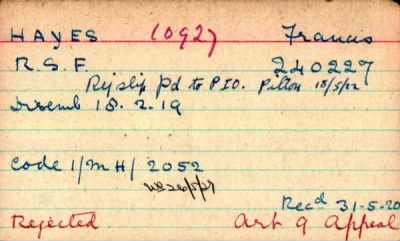 HAYES 10927 Francis
R.S.F. 240227
Ry slip pd to PIO. Pilton 18/5/22
Disemb 18.2.19
Code 1/MH/ 2052
26/5/27
Rec^d 31-5-20
Rejected. Art 9 Appeal